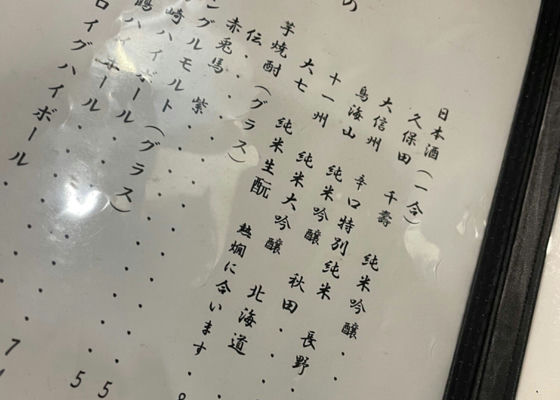 の
日本酒(一合)
久保田 千壽 純米吟醸・・
大信州 辛口特別純米 長野
鳥海山 純米吟醸 秋田・・・
十一州 純米大吟醸 北海道
大七 純米生酛 熱燗に合います・・
芋焼酎(グラス)
伝・・・
赤兎馬 紫・・・・・・・・
ングルモルト(グラス)
崎ハイボール・・・・・・・5
鶴ハイボール・・・・・・・5
ロイグハイボール・・・・7